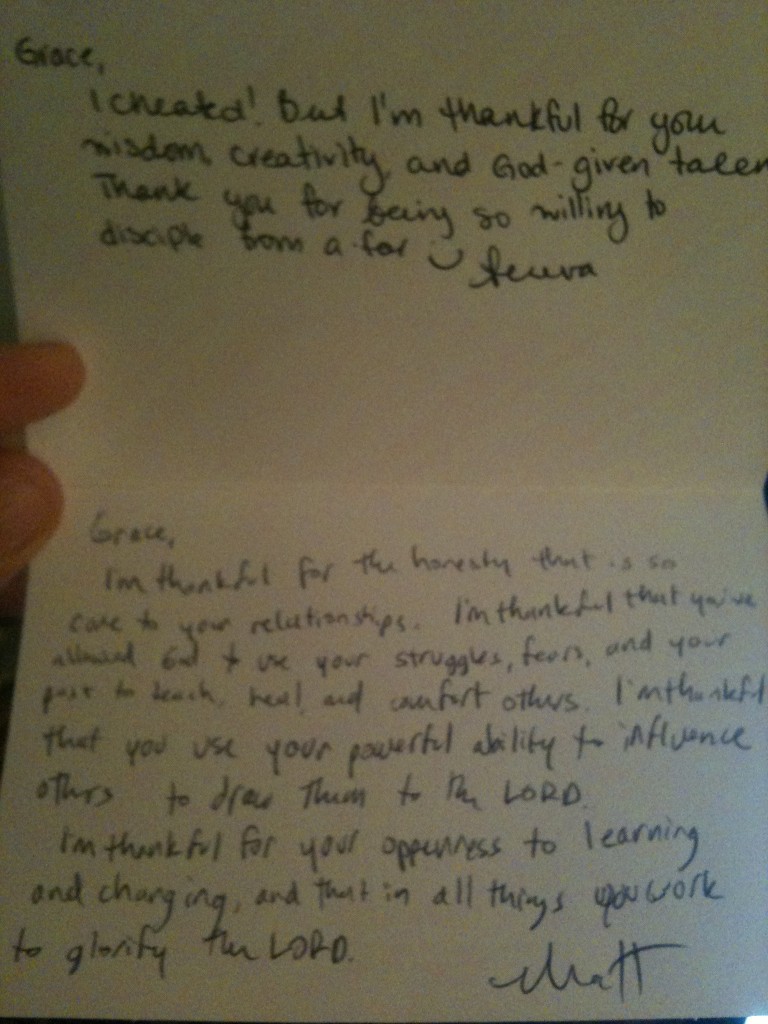 Grace,
I cheated! But I'm thankful for your
wisdom, creativity, and God-given talen
Thank you for being so willing to
disciple from a far
Grace,
I'm thankful for the honesty that is so
core to your relationships. I'm thankful that you've
allowed God to use your struggles, fears, and your
past to teach, heal, and comfort others. I'm thankful
that you use your powerful ability to influence
others to draw them to the LORD.
I'm thankful for your oppenness to learning
and changing, and that in all things you work
to glorify the LORD.
Matt